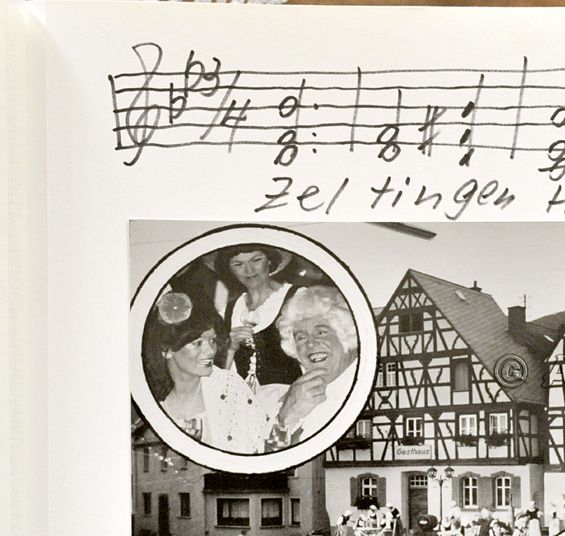 3/4
Zeltingen
Gasthaus
G